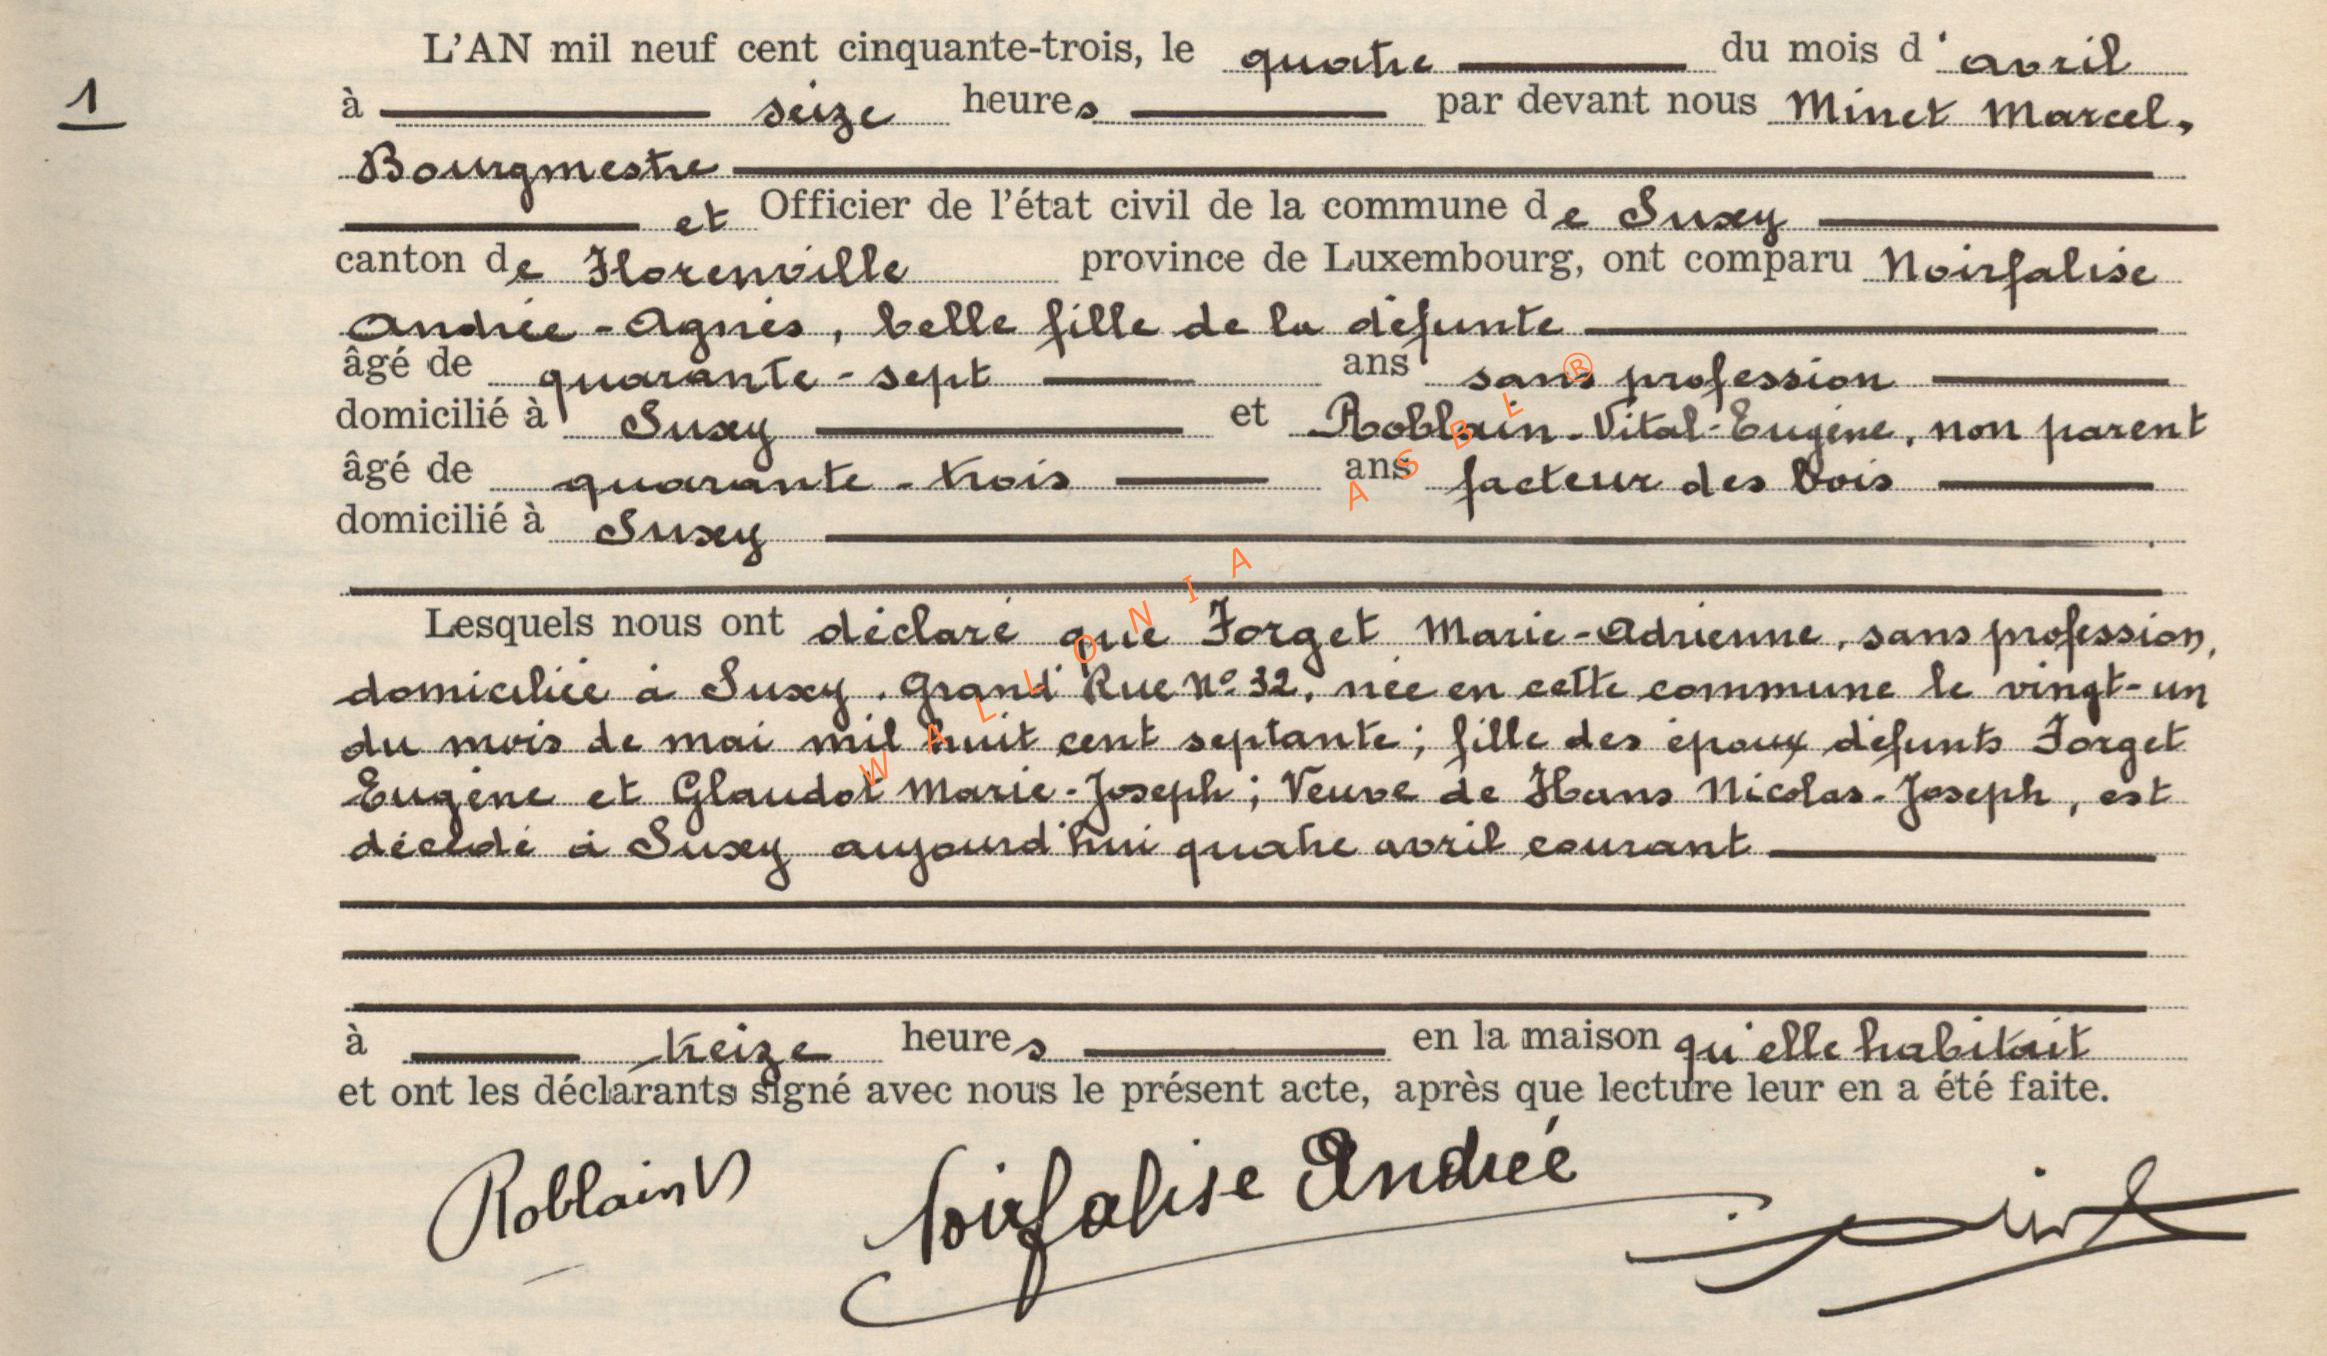 L'AN mil neuf cent cinquante-trois, le quatre du mois d'avril
1
à seize heures par devant nous Minet Marcel,
Bourgmestre
et Officier de l'état civil de la commune de Suxy
canton de Florenville province de Luxembourg, ont comparu Noirfalise
Andrée-Agnès, belle fille de la défunte
âgé de quarante-sept ans sans profession
domicilié à Suxy et Roblain-Vital-Eugène, non parent
âgé de quarante-trois ans facteur des bois
domicilié à Suxy
Lesquels nous ont déclaré que Forget Marie-Adrienne, sans profession,
domiciliée à Suxy, Grand'Rue N° 32, née en cette commune le vingt-un
du mois de mai mil huit cent septante; fille des époux défunts Forget
Eugène et Glaudot Marie-Joseph; Veuve de Hans Nicolas-Joseph, est
décédé à Suxy aujourd'hui quatre avril courant
à treize heures en la maison qu'elle habitait
et ont les déclarants signé avec nous le présent acte, après que lecture leur en a été faite.
Roblain V Noirfalise Andrée
WALLONIA ASBL ®